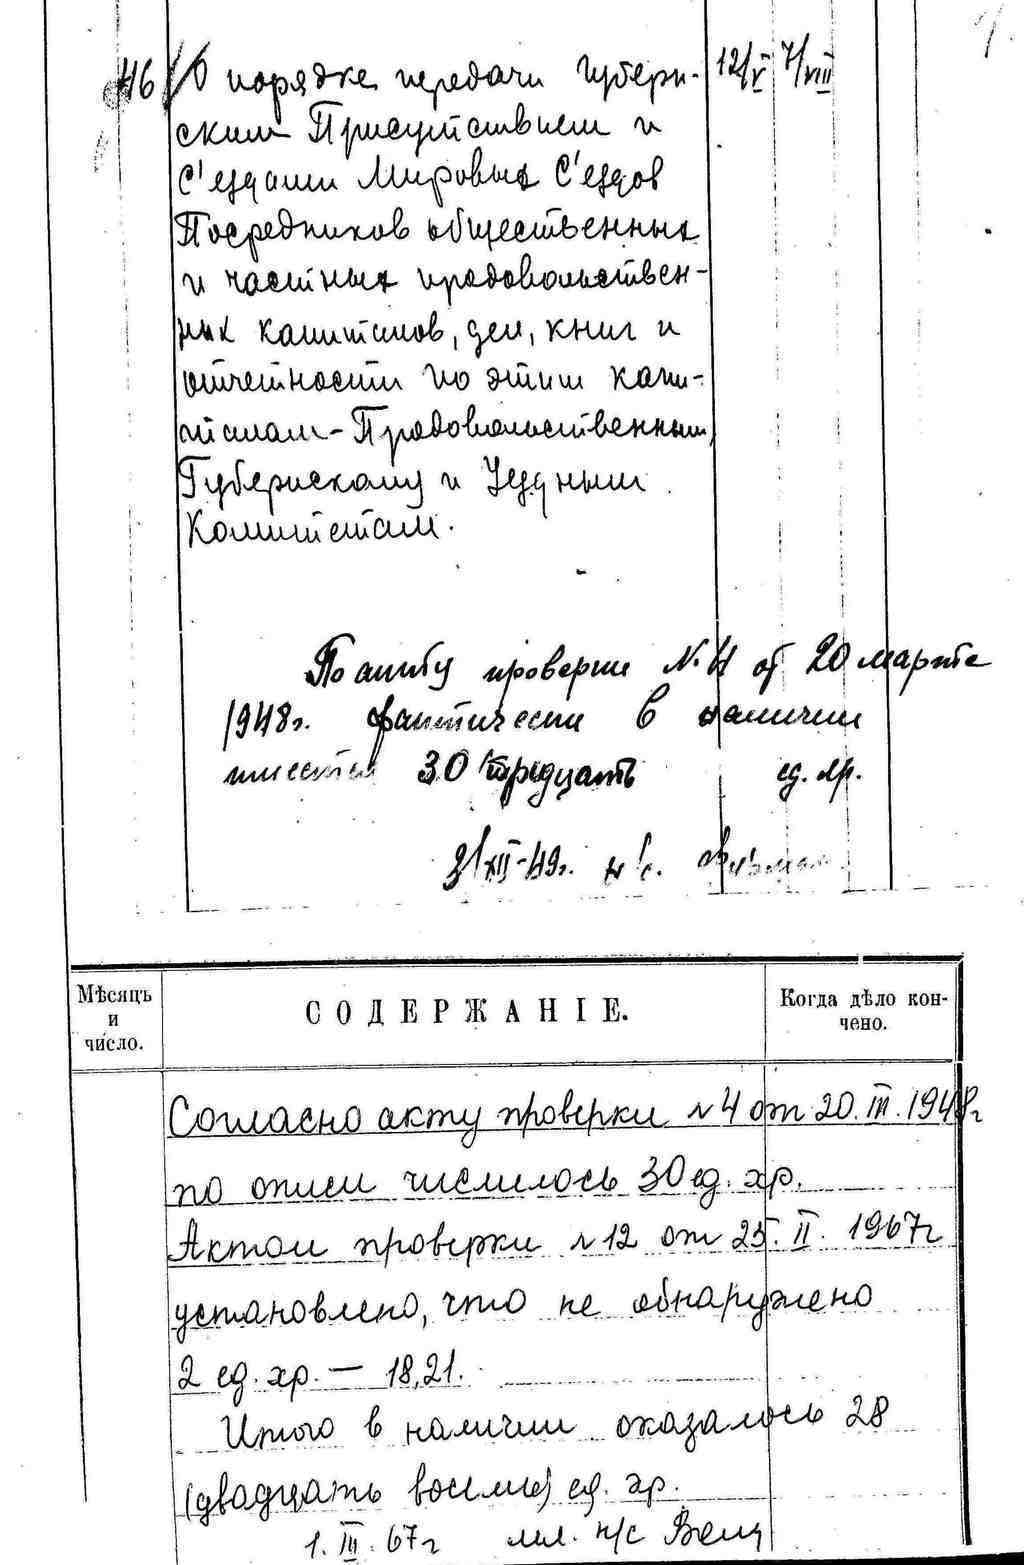 46 О порядке передачи Губерн- 12/V 7/VIII
ским Присутствием и
С'ездами Мировых С'ездов
Посредников общественных
и частных продовольствен-
ных капиталов, дел, книг и
отчетности по этим капи-
талам - Продовольственным,
Губернскому и Уездным
Комитетам.
По акту проверки № 4 от 20 марта
1948г. фактически в наличии
имеется 30 /тридцать ед. хр.
XII-49г. н/с.
Мѣсяцъ и число.
СОДЕРЖАНІЕ.
Когда дѣло кон-
чено.
Согласно акту проверки №4 от 20.III.1948г
по описи числилось 30 ед. хр.
Актом проверки №12 от 25.II.1967г
установлено, что не обнаружено
2 ед. хр. — 18,21.
Итого в наличии оказалось 28
(двадцать восемь) ед. хр.
1.III.67г мл. н/с